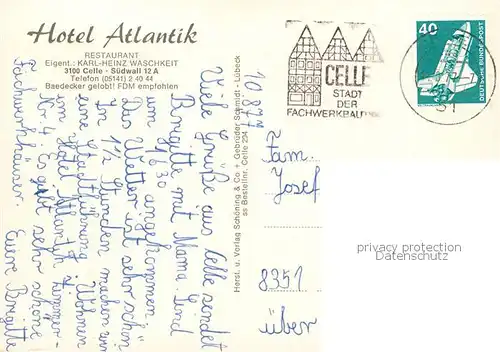 Hotel Atlantik
RESTAURANT
Eigent.: KARL-HEINZ WASCHKEIT
3100 Celle - Südwall 12 A
Telefon (05141) 2 40 44
Baedecker gelobt! FDM empfohlen
CELLE
STADT
DER
FACHWERKBAUTEN
40
DEUTSCHE BUNDESPOST
31
10.8.77
Viele Grüße aus Celle sendet
Brigitte mit Mama. Sind
um 16.30 angekommen.
Das Wetter ist sehr schön.
In 1½ Stunden machen wir
eine Stadtführung. Wohnen
im Hotel Atlantik Zimmer-
Nr 4. Es gibt sehr schöne
Fachwerkhäuser.
Eure Brigitte
Herst. u. Verlag Schöning & Co + Gebrüder Schmidt - Lübeck
ss Bestellnr. Celle 234
Fam.
Josef
8351
über
privacy protection
Datenschutz